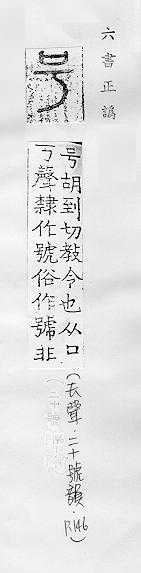 六書正譌
号
号胡到切教令也从口
丂聲隸作號俗作號非
(去聲·二十號韻·P.146)